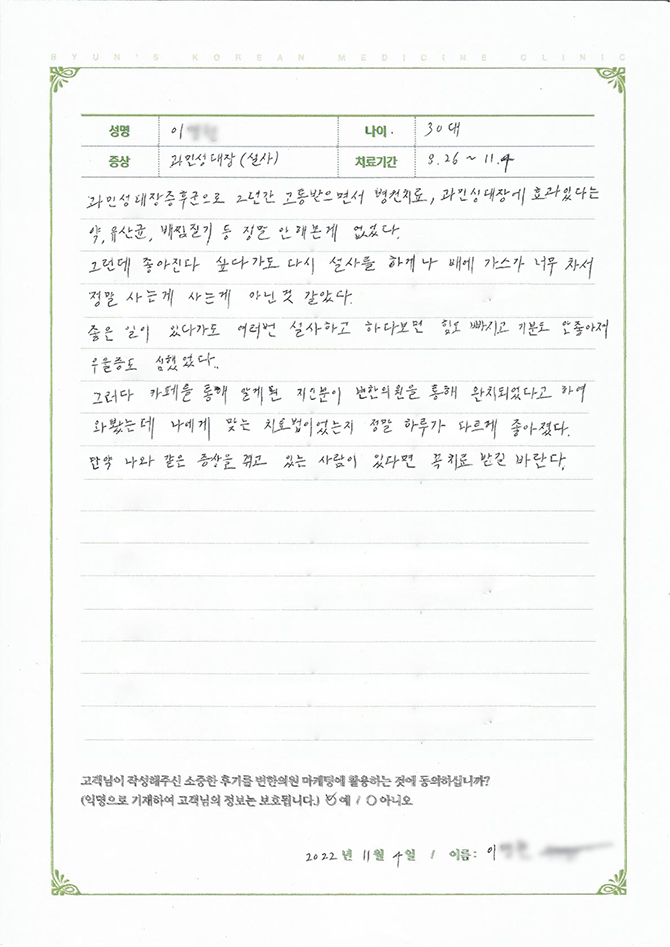 BYUN'S KOREAN MEDICINE CLINIC
성명 이 나이 30대
증상 과민성대장(설사) 치료기간 8.26 ~ 11.4
과민성대장증후군으로 2년간 고통받으면서 병원치료, 과민성대장에 효과있다는
약, 유산균, 배찜질기 등 정말 안해본게 없었다.
그런데 좋아진다 싶다가도 다시 설사를 하게나 배에 가스가 너무 차서
정말 사는게 사는게 아닌것 같았다.
좋은 일이 있다가도 여러번 설사하고 하다보면 힘도 빠지고 기분도 안좋아져
우울증도 심했었다..
그러다 카페를 통해 알게된 지인분이 변한의원을 통해 완치되었다고 하여
와봤는데 나에게 맞는 치료법이었는지 정말 하루가 다르게 좋아졌다.
만약 나와 같은 증상을 겪고 있는 사람이 있다면 꼭 치료 받길 바란다.
고객님이 작성해주신 소중한 후기를 변한의원 마케팅에 활용하는 것에 동의하십니까?
(익명으로 기재하여 고객님의 정보는 보호됩니다.) 예 / 아니오
2022 년 11 월 4 일 / 이름 : 이